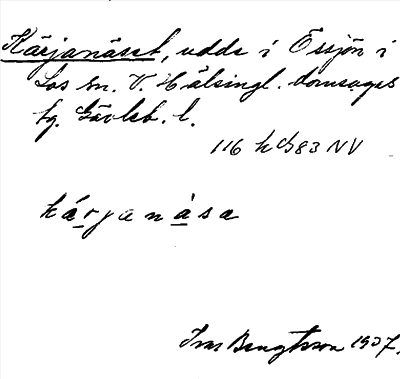 Kärjanäset, udde i Össjön i
Los sn. V. Hälsingl. domsagas
tg. Gävleb. l.
116 h c 83 NV
kárjanàsa
Ivar Bengtsson 1937.